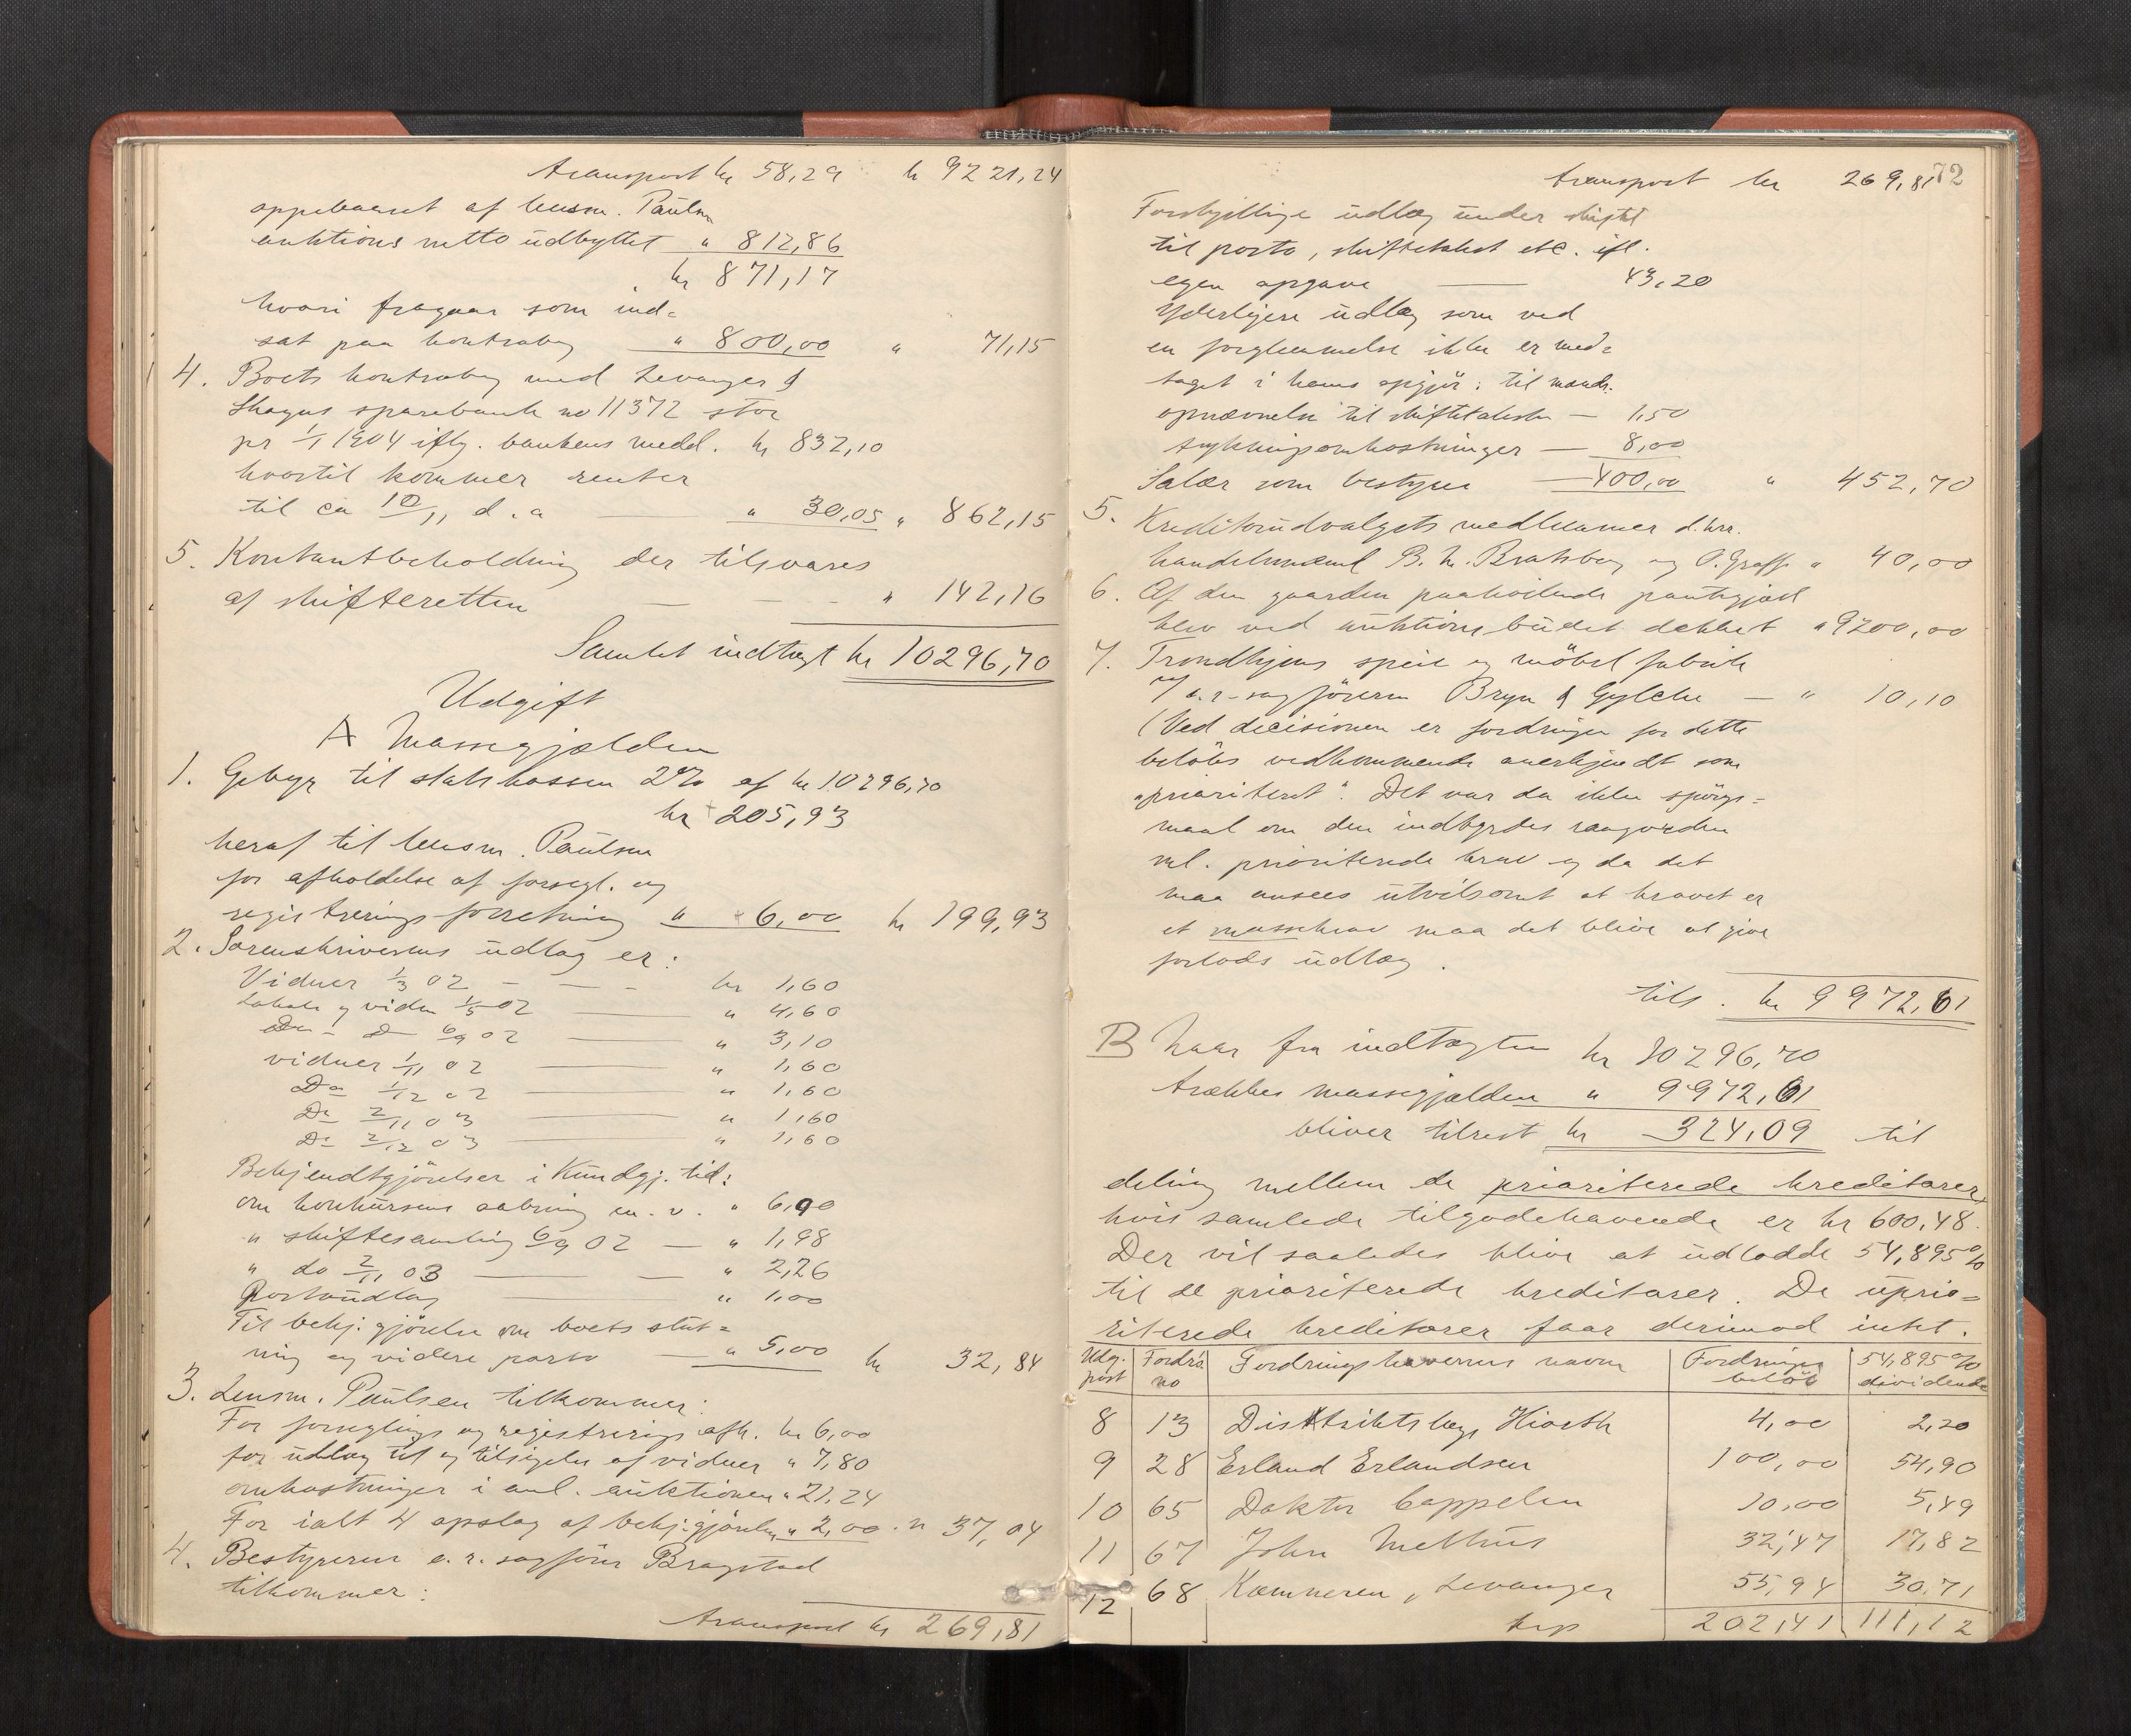 transport kr 58,29 kr 9221,24
oppebaaret af lensm. Paulsen
auktions netto udbyttet " 812,86
kr 871,17
hvori fragaar som ind=
sat paa kontrabog " 800,00 " 71,15
4. Boets kontrabog med Levanger &
Skogns sparebank no 11372 stor
pr 1/1 1904 iflg. bankens medd. kr 832,10
hvortil kommer renter
til ca 10/11 d.a " 30,05 " 862,15
5. Kontantbeholdning der tilsvares
af skifteretten — — - " 142,16
Samlet indtægt kr 10296,70
Udgift
A Massegjælden
1. Gebyr til statskassen 2% af kr 10296,70
kr 205,93
heraf til lensm. Paulsen
for afholdelse af forsegl. og
registreringsforretning " 6,00 kr 199,93
2. Sorenskriverens udlæg er:
Vidner 1/3 02 - — - kr 1,60
Lokale og vidn 1/5 02 — " 4,60
Do - Do 6/9 02 — " 3,10
vidner 1/11 02 — " 1,60
Do 1/12 02 — " 1,60
Do 2/11 03 — " 1,60
Do 2/12 03 — " 1,60
Bekjendtgjörelser i Kundgj. tid:
om konkursens aabning m. v. " 6,90
" skiftesamling 6/9 02 — " 1,98
" do 2/11 03 — — " 2,26
Portoudlæg — " 1,00
Til bekj.gjörelse om boets slut=
ning og videre porto — " 5,00 kr 32,84
3. Lensm. Paulsen tilkommer:
For forseglings og registrerings afh. kr 6,00
for udlæg til og tilsigelse af vidner " 7,80
omkostninger i anl. auktionen " 21,24
For ialt 4 opslag af bekj.gjörelse " 2,00 " 37,04
4. Bestyreren o. r. sagförer Bragstad
tilkommer:
transport kr 269,81
72
transport kr 269,81
Forskjellige udlæg under skiftet
til porto, skiftetakst etc. ifl.
egen opgave — 43,20
Yderligere udlæg som ved
en forglemmelse ikke er med=
taget i hans opgjör: til mænds.
opnævnelse til skiftetakster — 1,50
trykningsomkostninger — 8,00
Salær som bestyrer — 400,00 " 452,70
5. Kreditorudvalgets medlemmer d.hrr.
handelsmænd B. M. Bratsberg og O. Graff " 40,00
6. Af den gaarden paahvilende pantegjæld
blev ved auktionsbudet dækket " 9200,00
7. Trondhjems speil og möbel fabrik
v/ o.r-sagförerne Bryn & Gylche — " 10,10
(Ved decisionen er fordringen for dette
belöbs vedkommende anerkjendt som
"prioriteret". Det var da ikke spörgs=
maal om den indbyrdes rangorden
ml. prioriterede krav og da det
maa ansees utvilsomt at kravet er
et massekrav maa det blive at give
forlods udlæg.
tils. kr 9972,61
B Naar fra indtægten kr 10296,70
trækkes massegjælden " 9972,61
bliver tilrest kr 324,09 til
deling mellem de prioriterede kreditorer,
hvis samlede tilgodehavende er kr 600,48.
Der vil saaledes blive at udlodde 54,895%
til de prioriterede kreditorer. De uprio=
riterede kreditorer faar derimod intet.
Udg. post Fordr's no Fordringshaverens navn Fordringens belöb 54,895% dividende
8 13 Distriktslæge Hiorth 4,00 2,20
9 28 Erland Erlandsen 100,00 54,90
10 65 Doktor Cappelen 10,00 5,49
11 67 John Melhus 32,47 17,82
12 68 Kæmneren, Levanger 55,94 30,71
trp 202,41 111,12